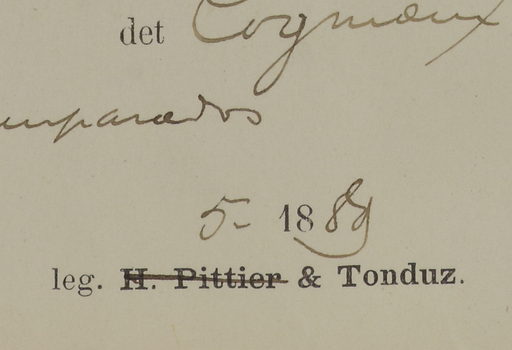 det Cogniaux
5- 1889
leg. H. Pittier & Tonduz.